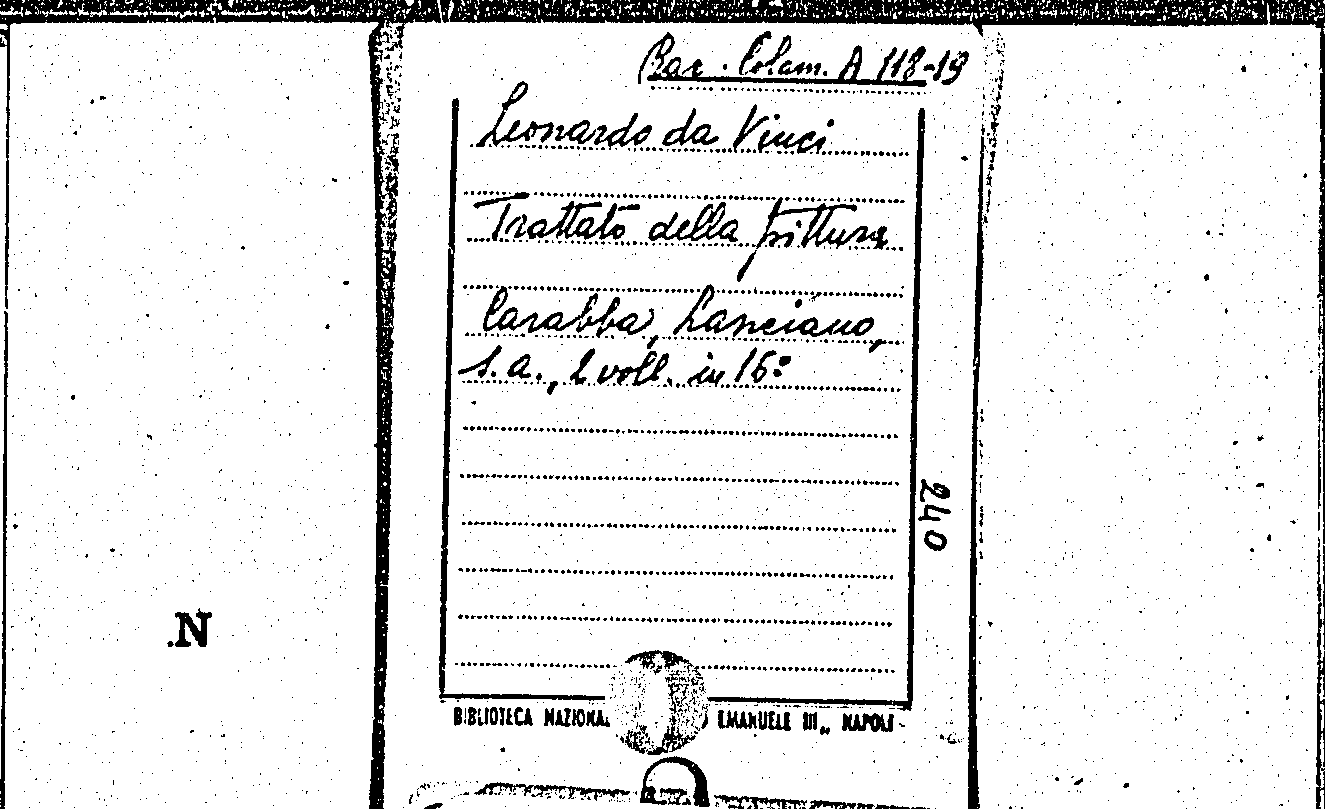 Bar. Colam. A 118-19
Leonardo da Vinci
Trattato della pittura
Carabba, Lanciano,
s.a., 2 voll. in 16º
240
N
BIBLIOTECA NAZIONA EMANUELE III„ NAPOLI